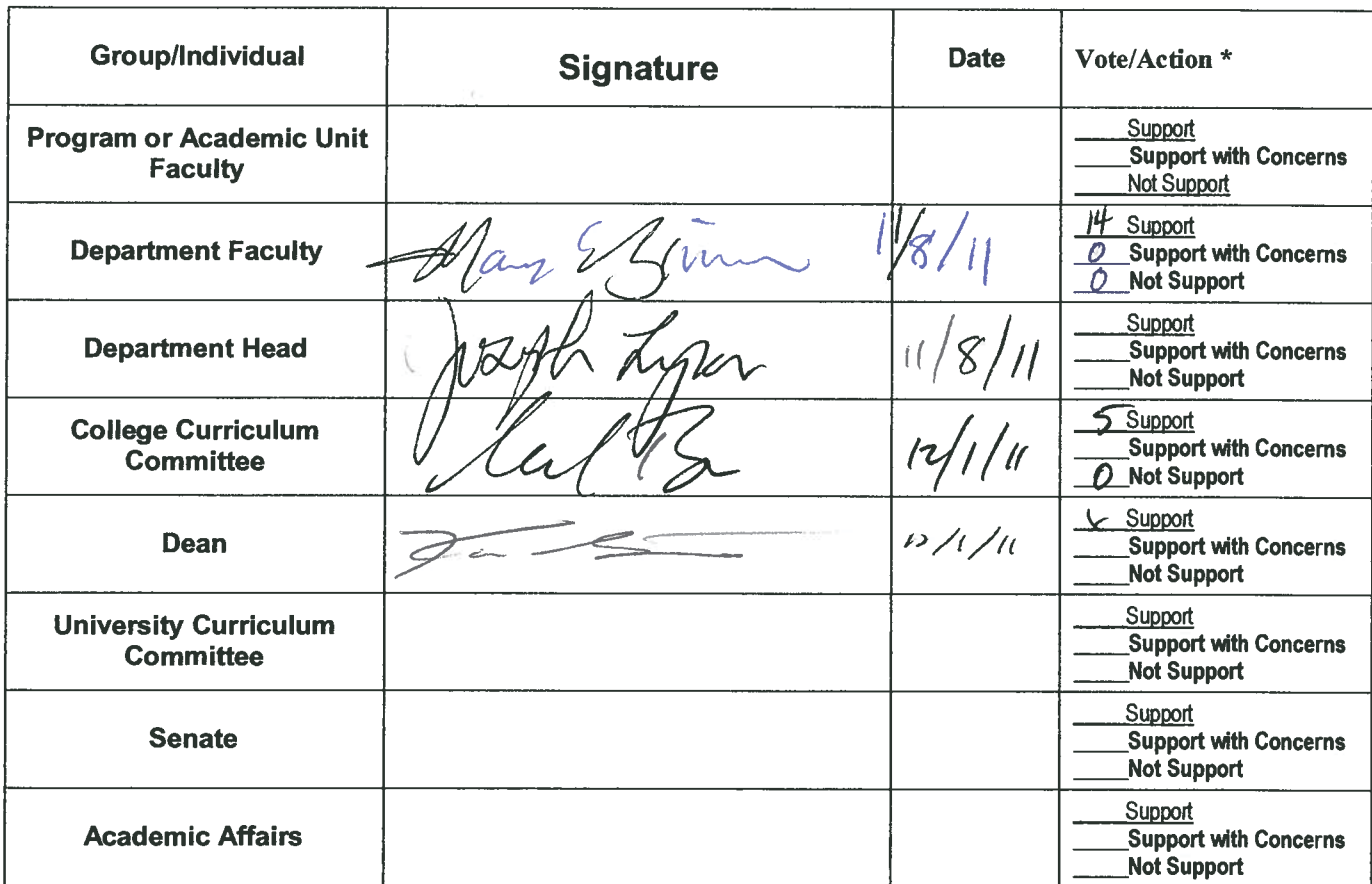 Group/Individual
Signature
Date
Vote/Action *
Program or Academic Unit
Faculty
Support
Support with Concerns
Not Support
Department Faculty
Mary E
11/8/11
14 Support
0 Support with Concerns
0 Not Support
Department Head
Joseph
11/8/11
Support
Support with Concerns
Not Support
College Curriculum
Committee
12/1/11
5 Support
Support with Concerns
0 Not Support
Dean
12/1/11
Support
Support with Concerns
Not Support
University Curriculum
Committee
Support
Support with Concerns
Not Support
Senate
Support
Support with Concerns
Not Support
Academic Affairs
Support
Support with Concerns
Not Support